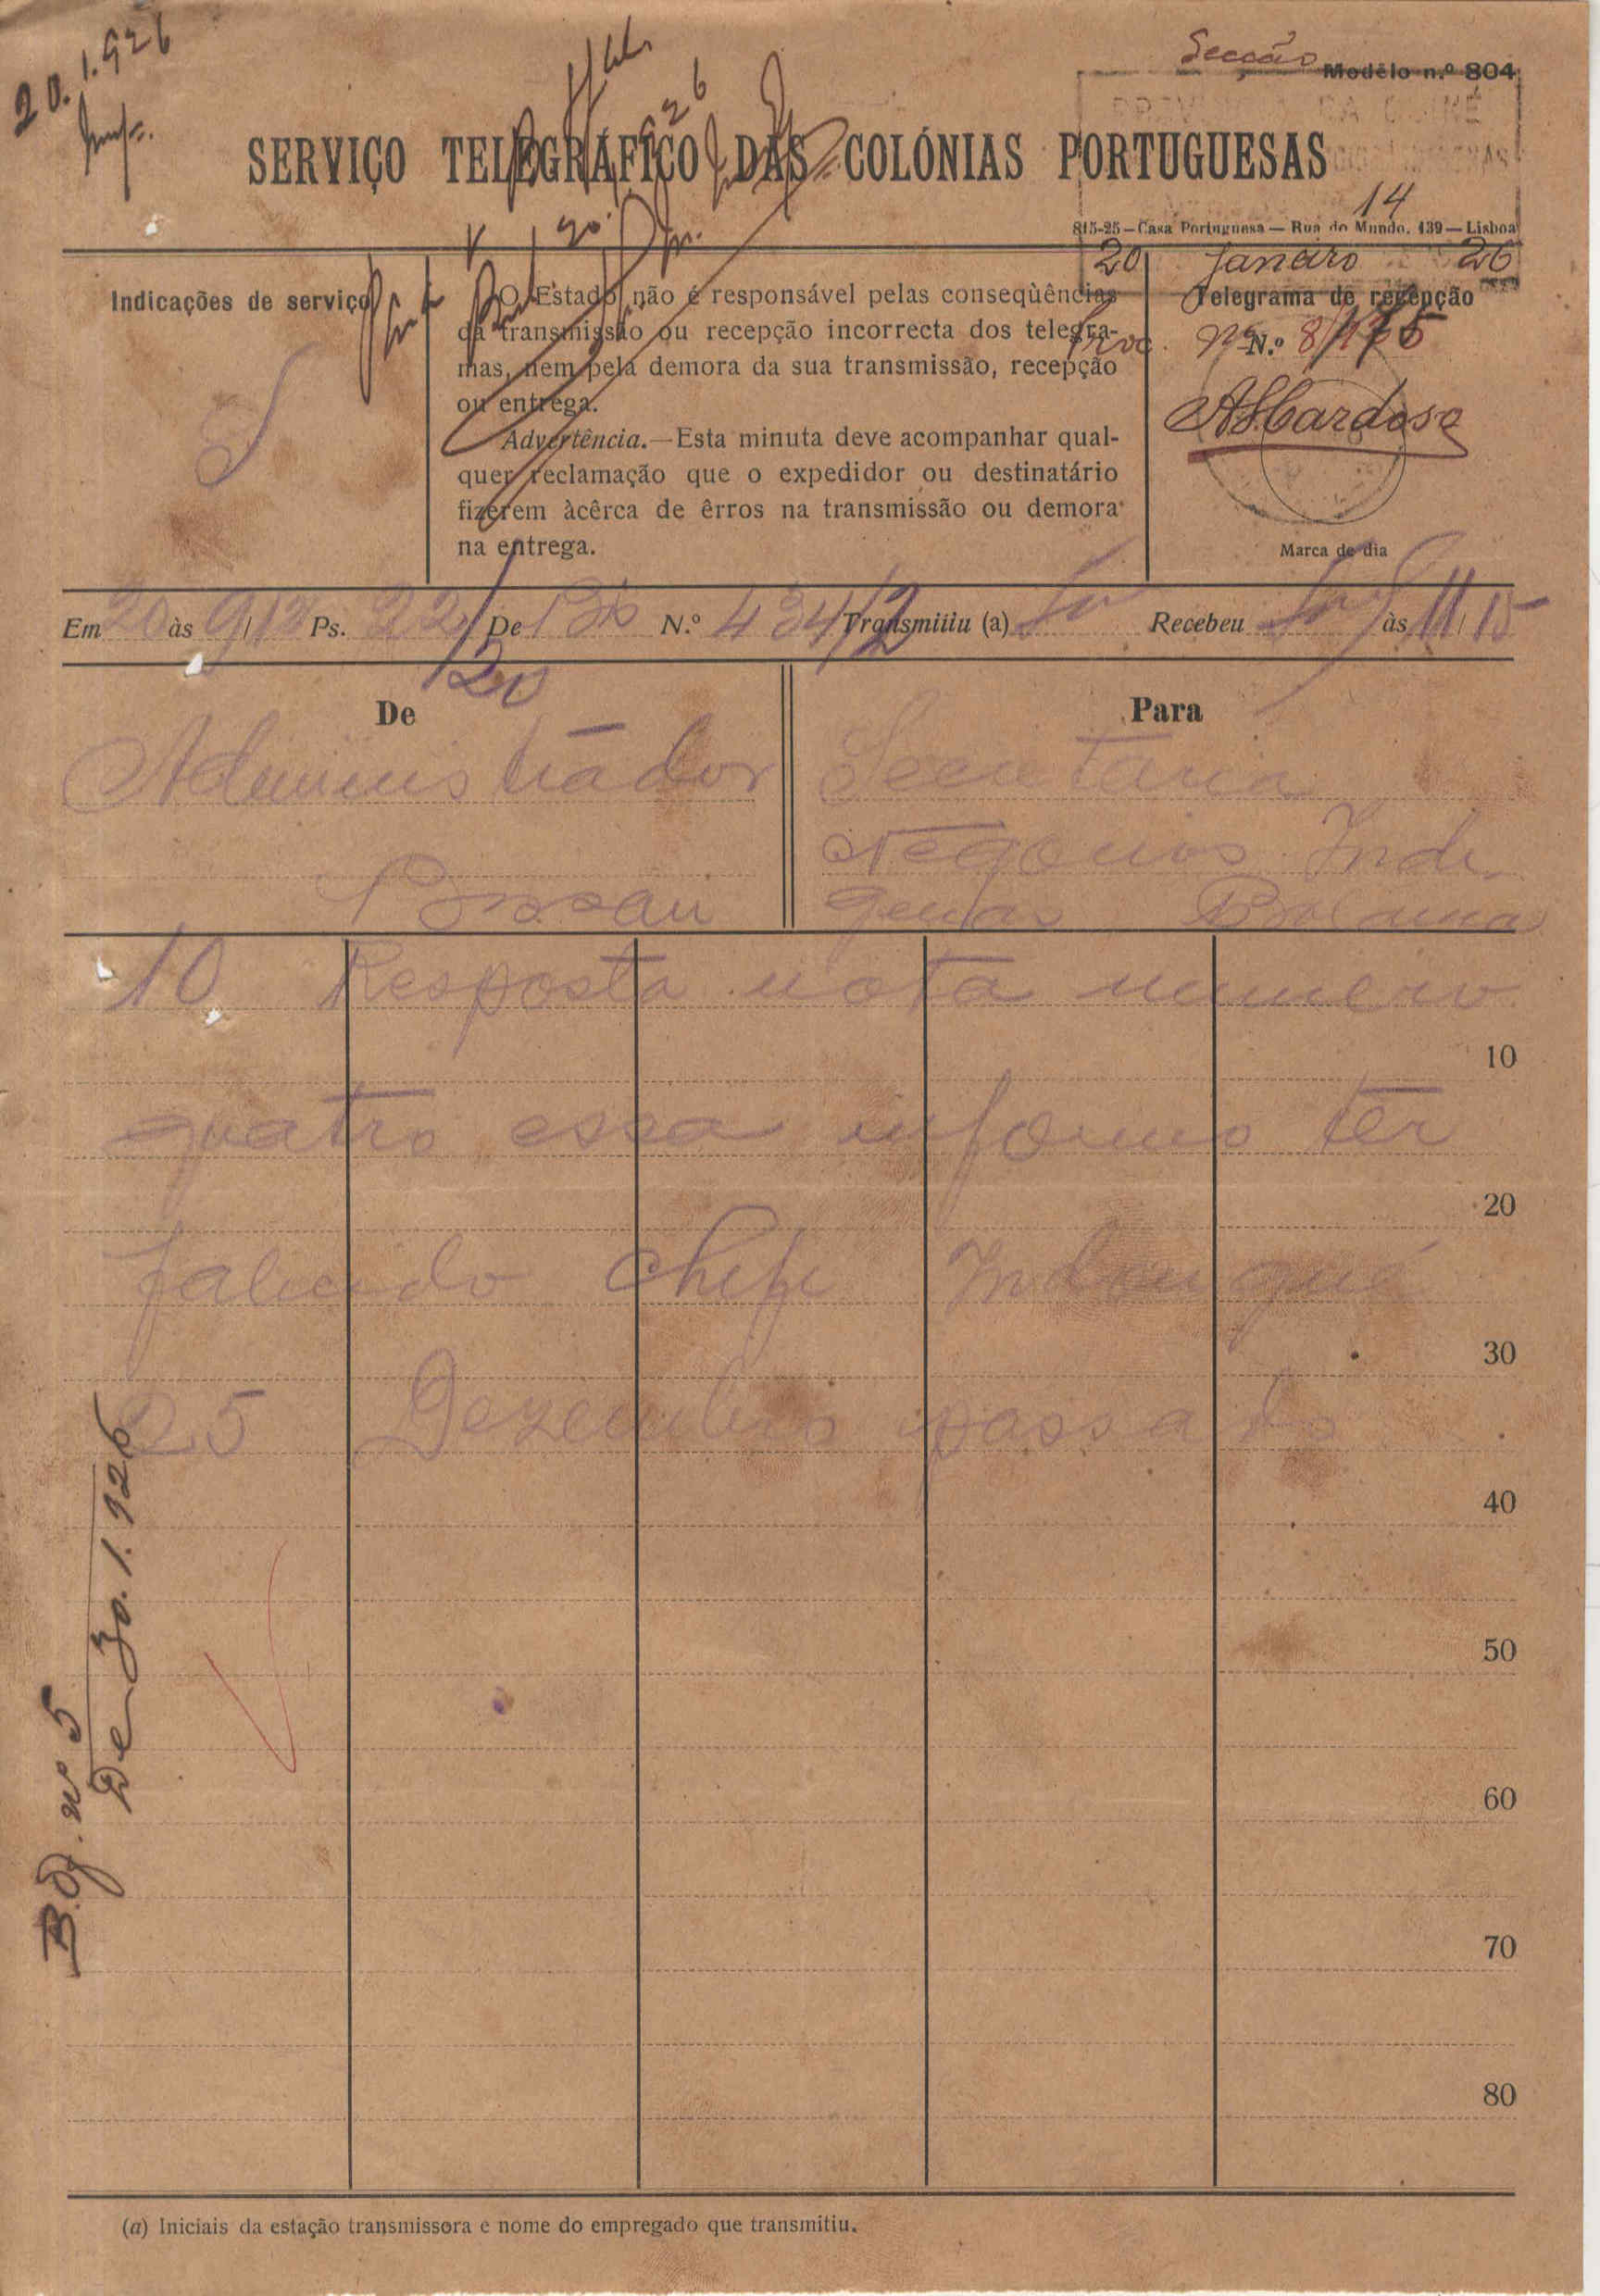 20.1.926
Secção Modêlo n.º 804
PROVINCIA DA GUINÉ
SERVIÇO TELEGRÁFICO DAS COLÓNIAS PORTUGUESAS
14
815-25—Casa Portuguesa — Rua do Mundo, 139 — Lisboa
20 Janeiro 26
Indicações de serviço
O Estado não é responsável pelas conseqùências
da transmissão ou recepção incorrecta dos telegra-
mas, nem pela demora da sua transmissão, recepção
ou entrega.
Advertência.—Esta minuta deve acompanhar qual-
quer reclamação que o expedidor ou destinatário
fizerem àcêrca de êrros na transmissão ou demora
na entrega.
Telegrama de recepção
Proc. N.º
ASCardoso
Marca de dia
Em 20 às 9/13 Ps. 22/20 De Bx N.º 434/2 Transmiiiu (a) Recebeu às 11/15
De
Administrador
Bissau
Para
Secretaria
Negocios Indi
genas Bolama
10 Resposta nota numero
10
quatro essa informo ter
20
falecido chefe
30
25 Dezembro passado
40
50
60
70
80
B. Of. nº 5
De 30.1.926
(a) Iniciais da estação transmissora e nome do empregado que transmitiu.